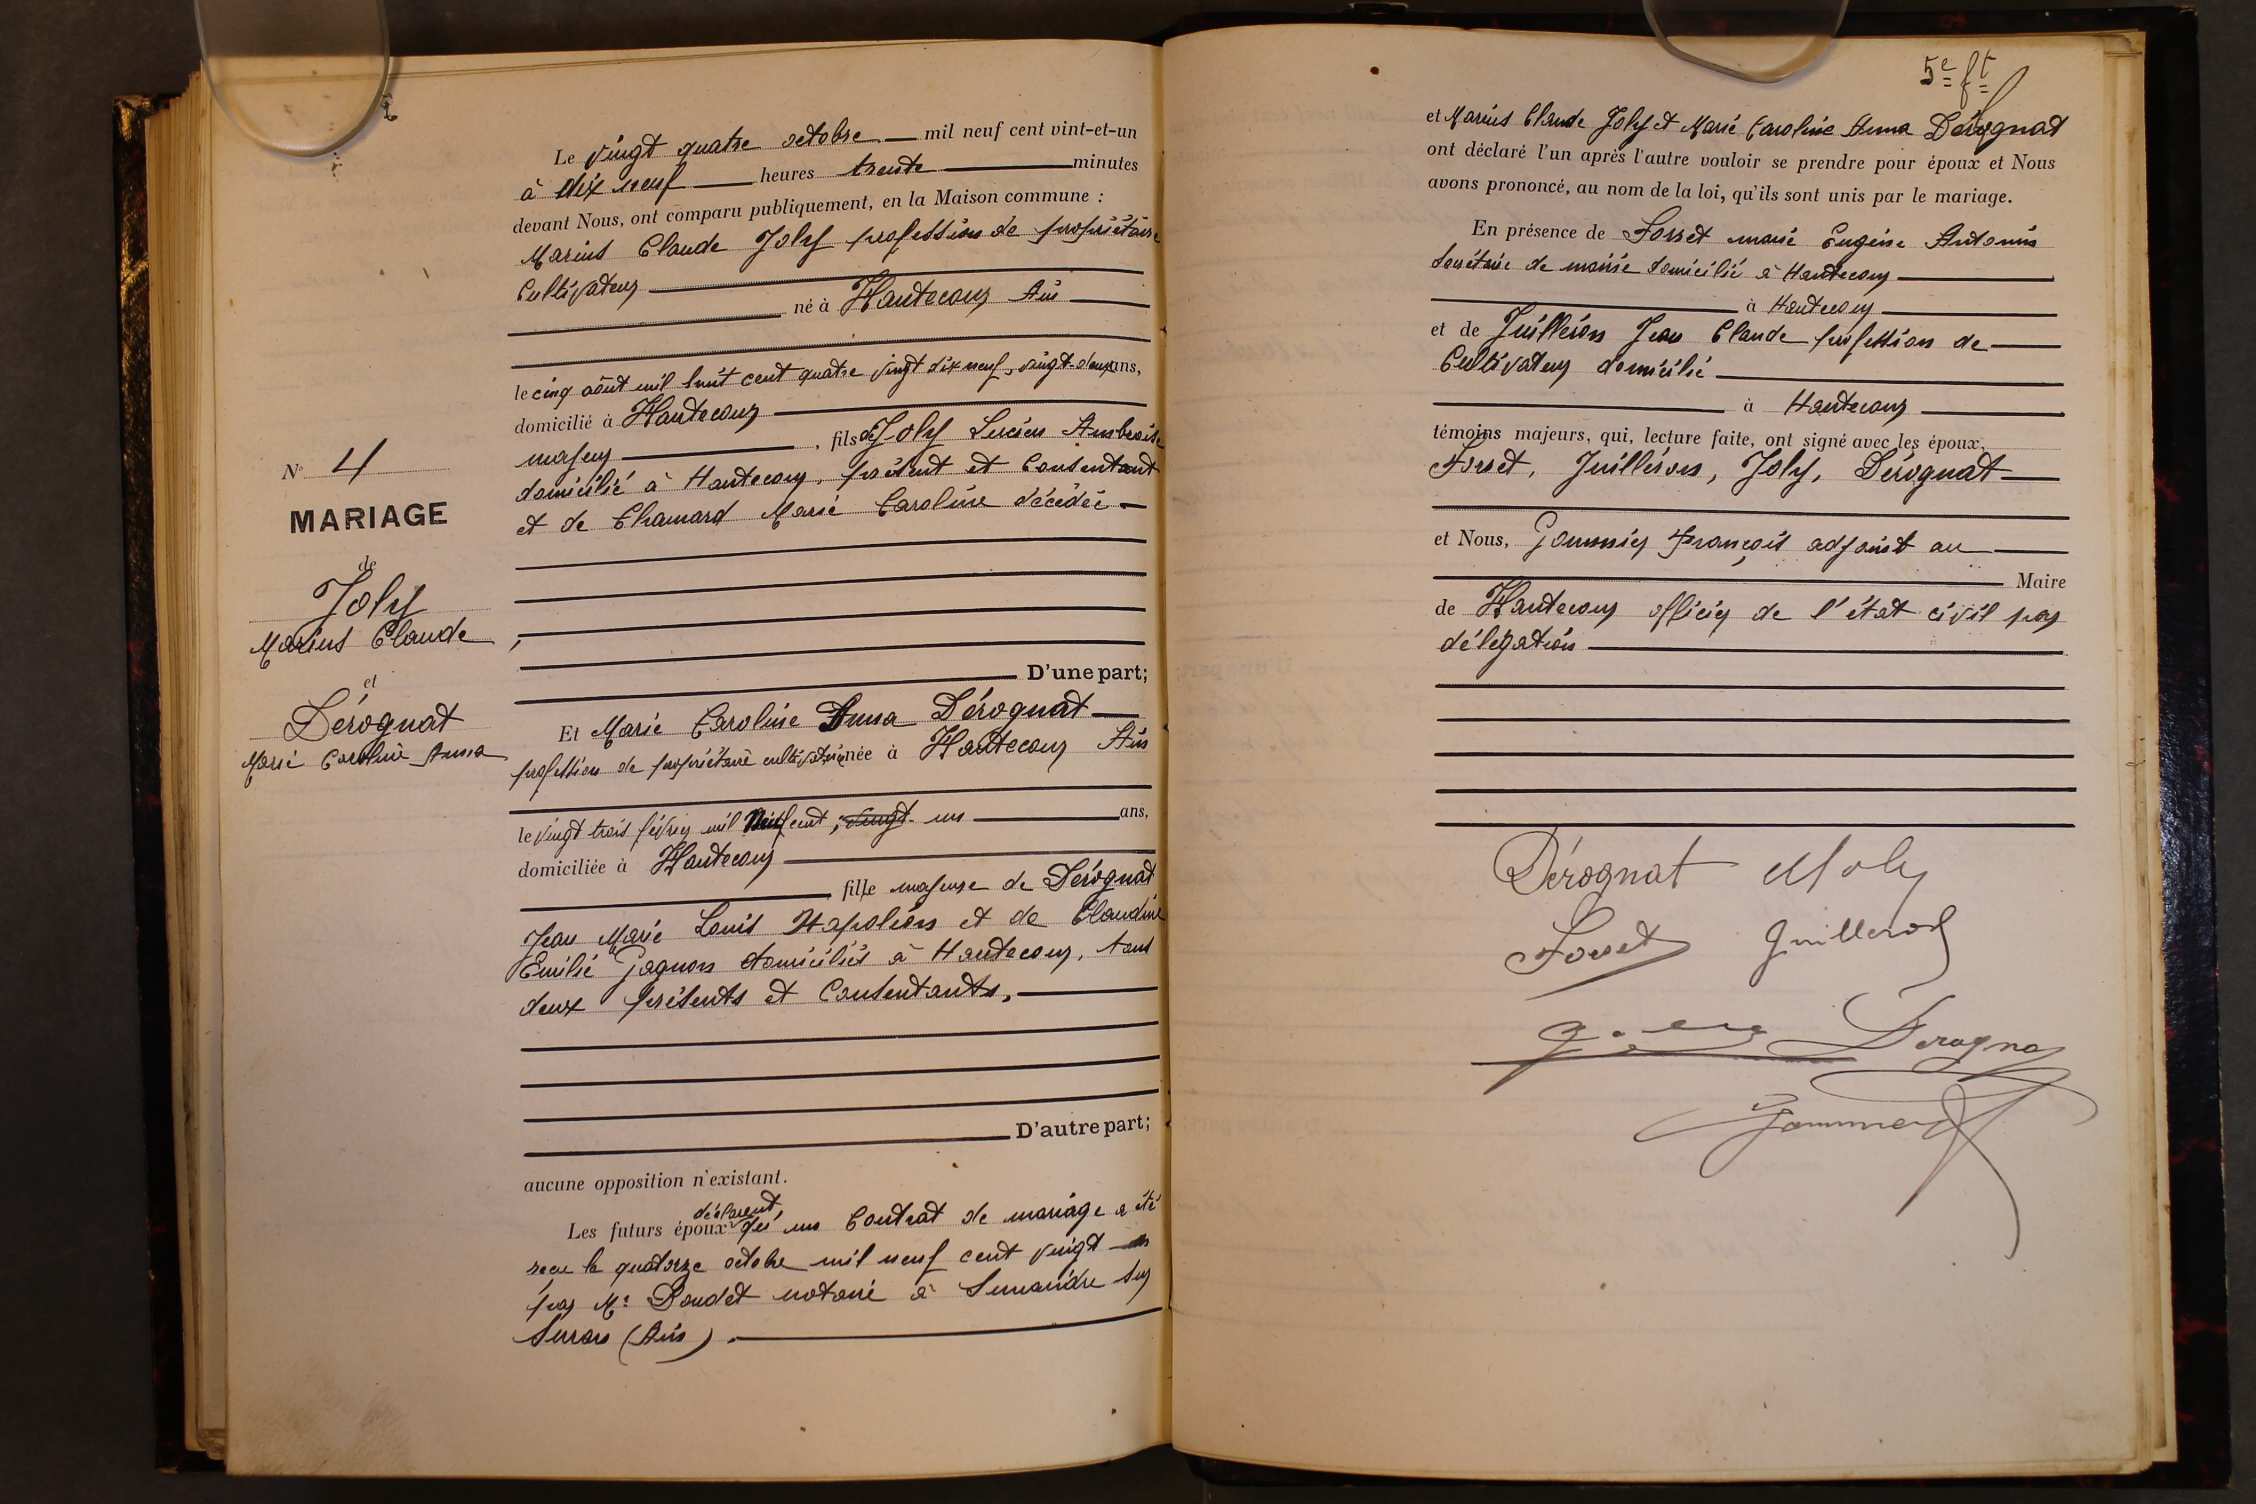 Le vingt quatre octobre mil neuf cent vint-et-un
à dix neuf heures trente minutes
devant Nous, ont comparu publiquement, en la Maison commune :
Marius Claude Joly profession de propriétaire
Cultivateur
né à Hautecour Ain
le cinq août mil huit cent quatre vingt dix neuf, vingt-deux ans,
domicilié à Hautecour
majeur , fils de Joly Lucien Ambroise
domicilié à Hautecour, présent et Consentant
et de Chamard Marie Caroline décédée
N° 4
MARIAGE
de
Joly
Marius Claude,
et
Dérognat
Marie Caroline Anna
D'une part;
Et Marie Caroline Anna Dérognat
profession de propriétaire cultivatrice née à Hautecour Ain
le vingt trois février mil Neuf cent, vingt-un ans,
domiciliée à Hautecour
fille majeure de Dérognat
Jean Marie Louis Napoléon et de Claudine
Emilie Gagnon domiciliés à Hautecour, tous
deux présents et Consentants,
D'autre part;
aucune opposition n'existant.
déclarent,
Les futurs époux qu' un Contrat de mariage a été
reçu le quatorze octobre mil neuf cent vingt un
par Me Boudet notaire à Simandre sur
Suran (Ain).
5e ft
et Marius Claude Joly et Marie Caroline Anna Dérognat
ont déclaré l'un après l'autre vouloir se prendre pour époux et Nous
avons prononcé, au nom de la loi, qu'ils sont unis par le mariage.
En présence de Forset marie Eugène Antonin
Secrétaire de mairie domicilié à Hautecour
à Hautecour
et de Juilleron Jean Claude profession de
Cultivateur domicilié
à Hautecour
témoins majeurs, qui, lecture faite, ont signé avec les époux,
Forset, Juilleron, Joly, Dérognat
et Nous, Goummier François adjoint au
Maire
de Hautecour officier de l'état civil par
délégation
Dérognat MJoly
Forset Guilleron
Derogna